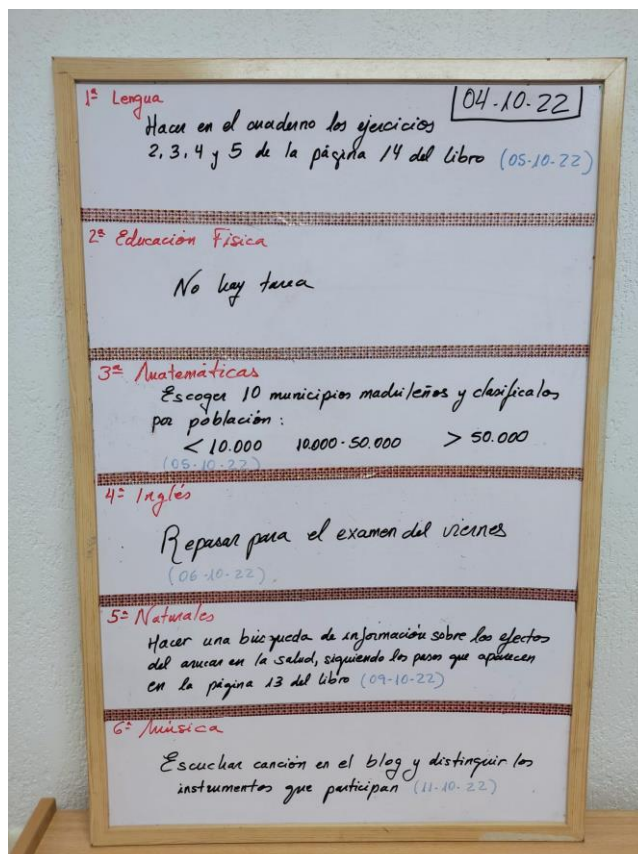 1ª Lengua
04-10-22
Hacer en el cuaderno los ejercicios
2, 3, 4 y 5 de la página 14 del libro (05-10-22)
2ª Educación Física
No hay tarea
3ª Matemáticas
Escoger 10 municipios madrileños y clasifícalos
por población:
< 10.000 10.000-50.000 > 50.000
(05-10-22)
4ª Inglés
Repasar para el examen del viernes
(06-10-22)
5ª Naturales
Hacer una búsqueda de información sobre los efectos
del azucar en la salud, siguiendo los pasos que aparecen
en la página 13 del libro (09-10-22)
6ª Música
Escuchar canción en el blog y distinguir los
instrumentos que participan (11-10-22)